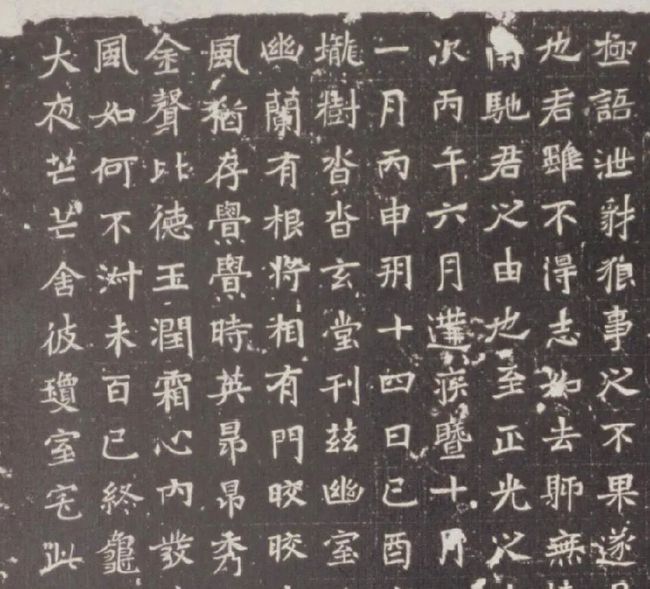 極語泄豺狼事之不果遂
也君雖不得志如去聊無
南馳君之由也至正光之
次丙午六月遘疾暨十月
一月丙申朔十四日己酉
壠樹沓沓玄堂刊玆幽室
幽蘭有根將相有門晈晈
風猶存亹亹時英昂昂秀
金聲比德玉潤霜心內發
風如何不淑未百已終龜
大夜芒芒舍彼瓊室宅此